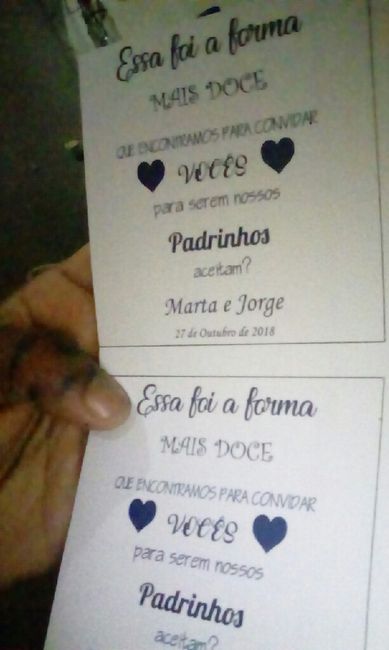 Essa foi a forma
MAIS DOCE
QUE ENCONTRAMOS PARA CONVIDAR
VOCÊS
para serem nossos
Padrinhos
aceitam?
Marta e Jorge
27 de Outubro de 2018
Essa foi a forma
MAIS DOCE
QUE ENCONTRAMOS PARA CONVIDAR
VOCÊS
para serem nossos
Padrinhos
aceitam?